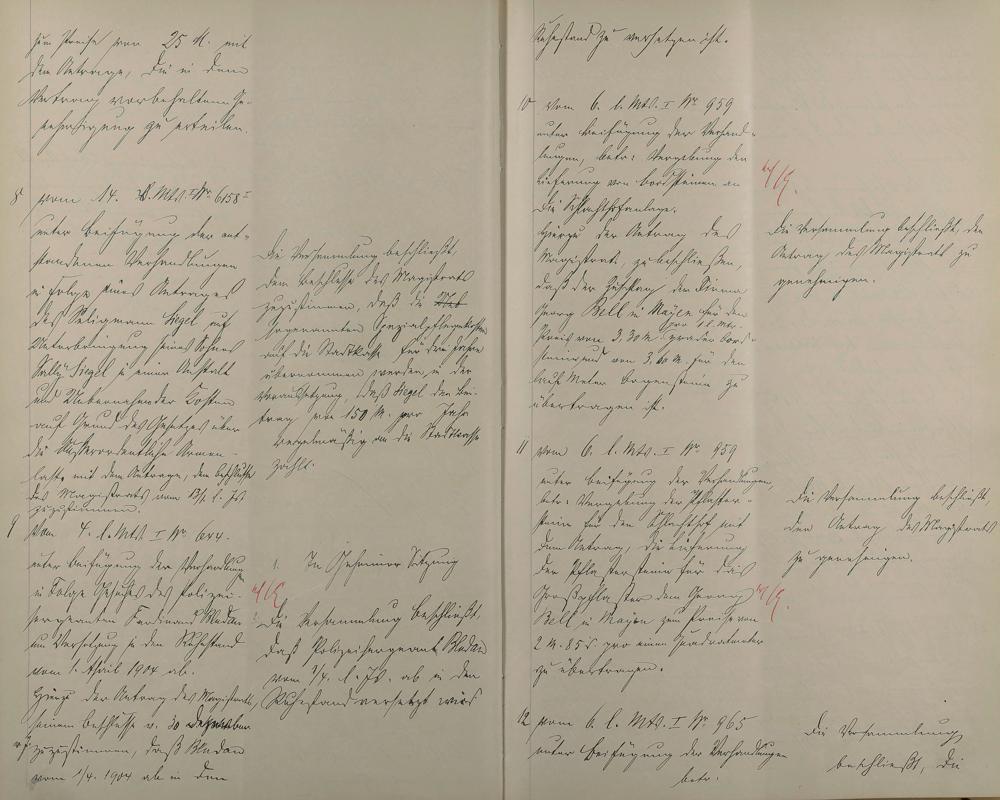 zum Preise von 25 M. mit
dem Antrage, die in dem
Vertrag vorbehaltene Ge-
nehmigung zu erteilen.
8 vom 14. v. Mts. I No 6158 I
unter Beifügung der ent-
standenen Verhandlungen
in Folge eines Antrages
des Seligmann Siegel auf
Unterbringung seines Sohnes
Sally Siegel in einer Anstalt
und Übernahme der Kosten
auf Grund des Gesetzes über
die außerordentliche Armen-
last mit dem Antrage, dem Beschlusse
des Magistrats vom 13/1. l. Js
zuzustimmen.
Die Versammlung beschließt,
dem Beschlusse des Magistrats
zuzustimmen, daß die
sogenannten Spezialpflegekosten
auf die Stadtkasse für drei Jahre
übernommen werden, in der
Voraussetzung, daß Siegel den Bei-
trag von 150 M. pro Jahr
regelmäßig an die Stadtkasse
zahlt.
9 Vom 4. l. Mts I No 644.
unter Beifügung der Verhandlung
in Folge Gesuches des Polizei-
sergeanten Ferdinand Bledau
um Versetzung in den Ruhestand
vom 1. April 1904 ab.
Hierzu der Antrag des Magistrats,
seinem Beschlusse v. 30 Dezember
v. J. zuzustimmen, daß Bledau
vom 1/4. 1904 ab in den
1. In Geheimer Sitzung
Die Versammlung beschließt,
daß Polizeisergeant Bledau
vom 1/4. l. Js. ab in den
Ruhestand versetzt wird
Ruhestand zu versetzen ist.
10 vom 6. l. Mts. I No 959
unter Beifügung der Verhand-
lungen, betr: Vergebung der
Lieferung von Bordsteinen an
die Schlachthofanlage.
Hierzu der Antrag des
Magistrats, zu beschließen,
daß der Zuschlag der Firma
Georg Bell in Mayen für den
pro 1 l. Mtr.
Preis von 3.30 M. graden Bord-
steine und von 3. M. für den
lauf. Meter Bogensteine zu
übertragen ist.
Die Versammlung beschließt, den
Antrag des Magistrats zu
genehmigen.
11 vom 6. l. Mts. I No 959
unter Beifügung der Verhandlungen,
betr: Vergebung der Pflaster-
steine für den Schlachthof mit
dem Antrag, die Lieferung
der Pflastersteine für das
Großpflaster dem Georg
Bell in Mayen zum Preise von
2 M. 85 d. pro einen Quadratmeter
zu übertragen.
Die Versammlung beschließt,
den Antrag des Magistrats
zu genehmigen.
12 vom 6. l. Mts. I No 965
unter Beifügung der Verhandlungen
betr:
Die Versammlung
beschließt, die